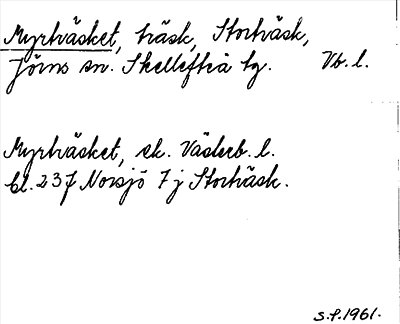 Myrträsket, träsk, Storträsk,
Jörns sn. Skellefteå tg. Vb. l.
Myrträsket, ek. Västerb. l.
bl. 237 Norsjö 7 j Storträsk.
S.f. 1961.